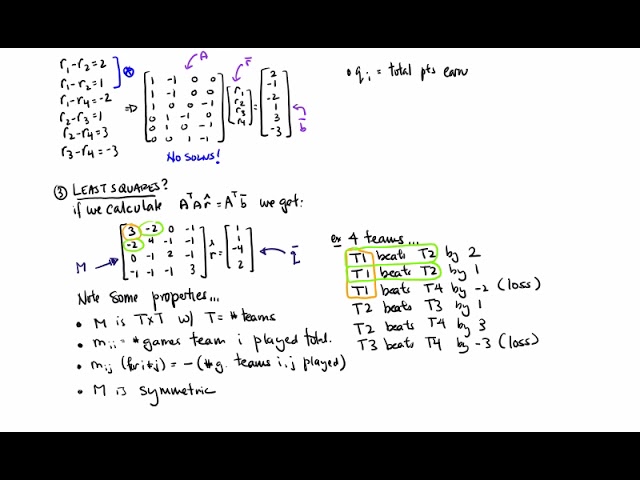 r₁-r₂=2
r₁-r₂=1
r₁-r₄=-2
r₂-r₃=1
r₂-r₄=3
r₃-r₄=-3
A r̄
1 -1 0 0 r₁ 2
1 -1 0 0 r₂ -1
1 0 0 -1 r₃ = -2
0 1 -1 0 r₄ 1
0 1 0 -1 3
0 0 1 -1 -3
b̄
NO SOLNS!
• qᵢ = total pts earn
③ LEAST SQUARES?
if we calculate AᵀA r̂ = Aᵀ b̄ we get:
3 -2 0 -1 1
-2 4 -1 -1 r̂ = 1
0 -1 2 -1 -4
-1 -1 -1 3 2
M
q̄
Note some properties...
• M is T×T w/ T = # teams
• mᵢᵢ = # games team i played total.
• mᵢⱼ (for i≠j) = - (# g. teams i,j played)
• M is symmetric
ex 4 teams...
T1 beats T2 by 2
T1 beats T2 by 1
T1 beats T4 by -2 (loss)
T2 beats T3 by 1
T2 beats T4 by 3
T3 beats T4 by -3 (loss)